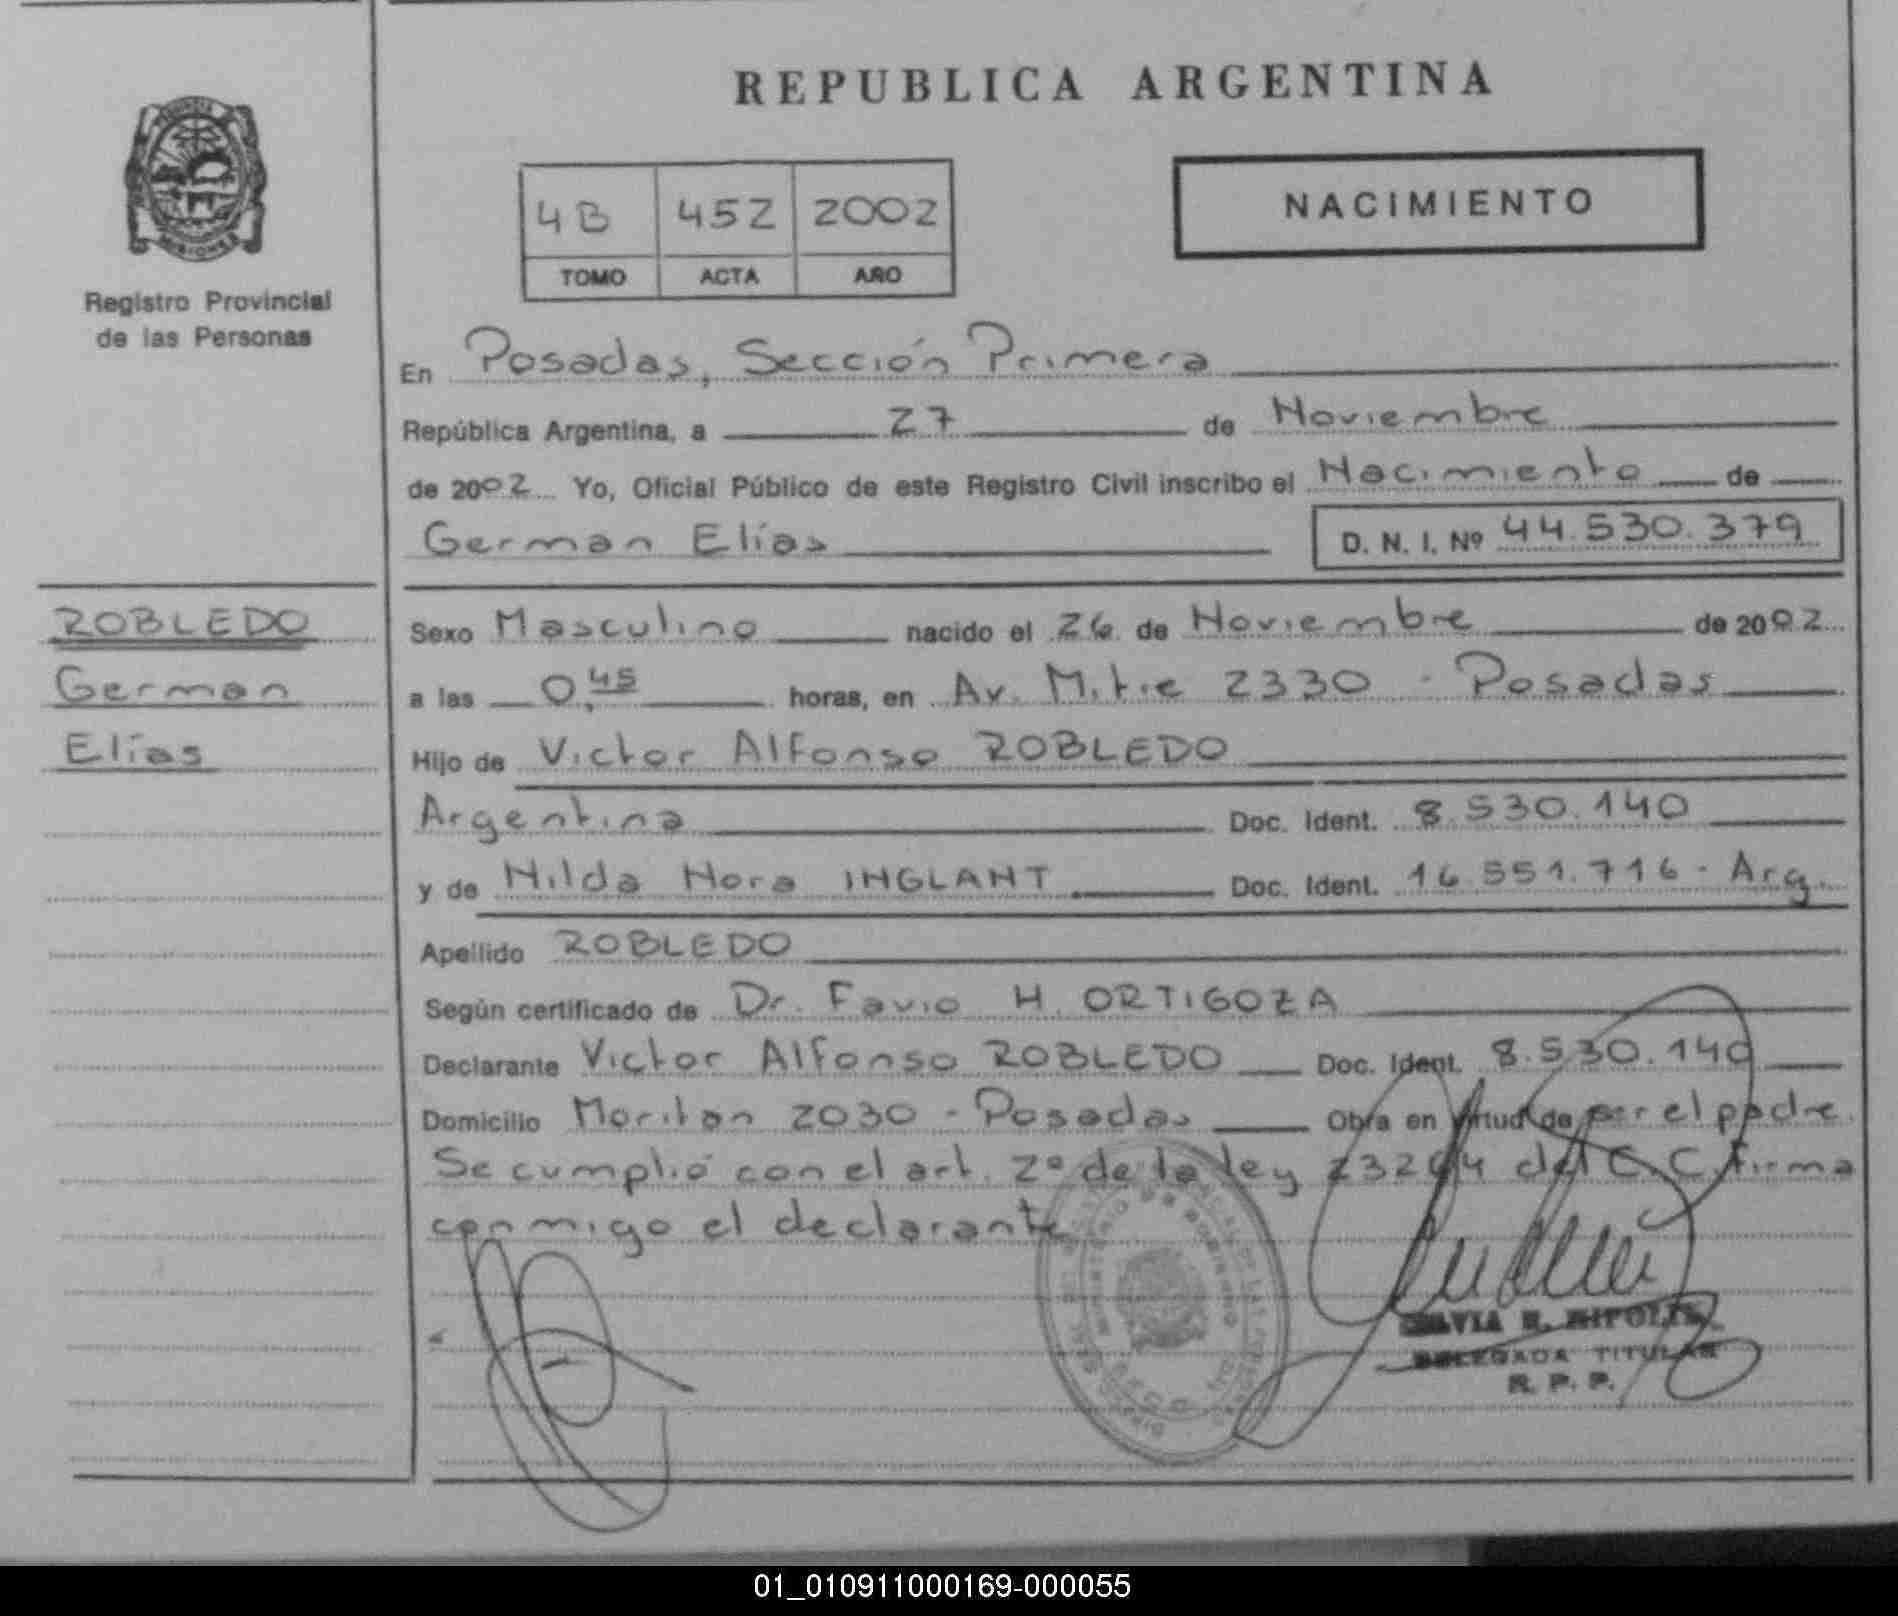 REPUBLICA ARGENTINA
NACIMIENTO
4B 452 2002
TOMO ACTA AÑO
MISIONES
Registro Provincial
de las Personas
En Posadas, Sección Primera
República Argentina, a 27 de Noviembre
de 2002 Yo, Oficial Público de este Registro Civil inscribo el Nacimiento de
German Elías D. N. I. Nº 44.530.379
ROBLEDO
German
Elías
Sexo Masculino nacido el 26 de Noviembre de 2002
a las 0,45 horas, en Av. Mitre 2330 - Posadas
Hijo de Victor Alfonso ROBLEDO
Argentina Doc. Ident. 8.530.140
y de Nilda Nora INGLANT Doc. Ident. 16.551.716 - Arg.
Apellido ROBLEDO
Según certificado de Dr. Favio H. ORTIGOZA
Declarante Victor Alfonso ROBLEDO Doc. Ident. 8.530.140
Domicilio Moritan 2030 - Posadas Obra en virtud de ser el padre.
Se cumplió con el art. 2º de la ley 23264 del C. C. firma
conmigo el declarante
DELEGADA TITULAR
R. P. P.
01_010911000169-000055